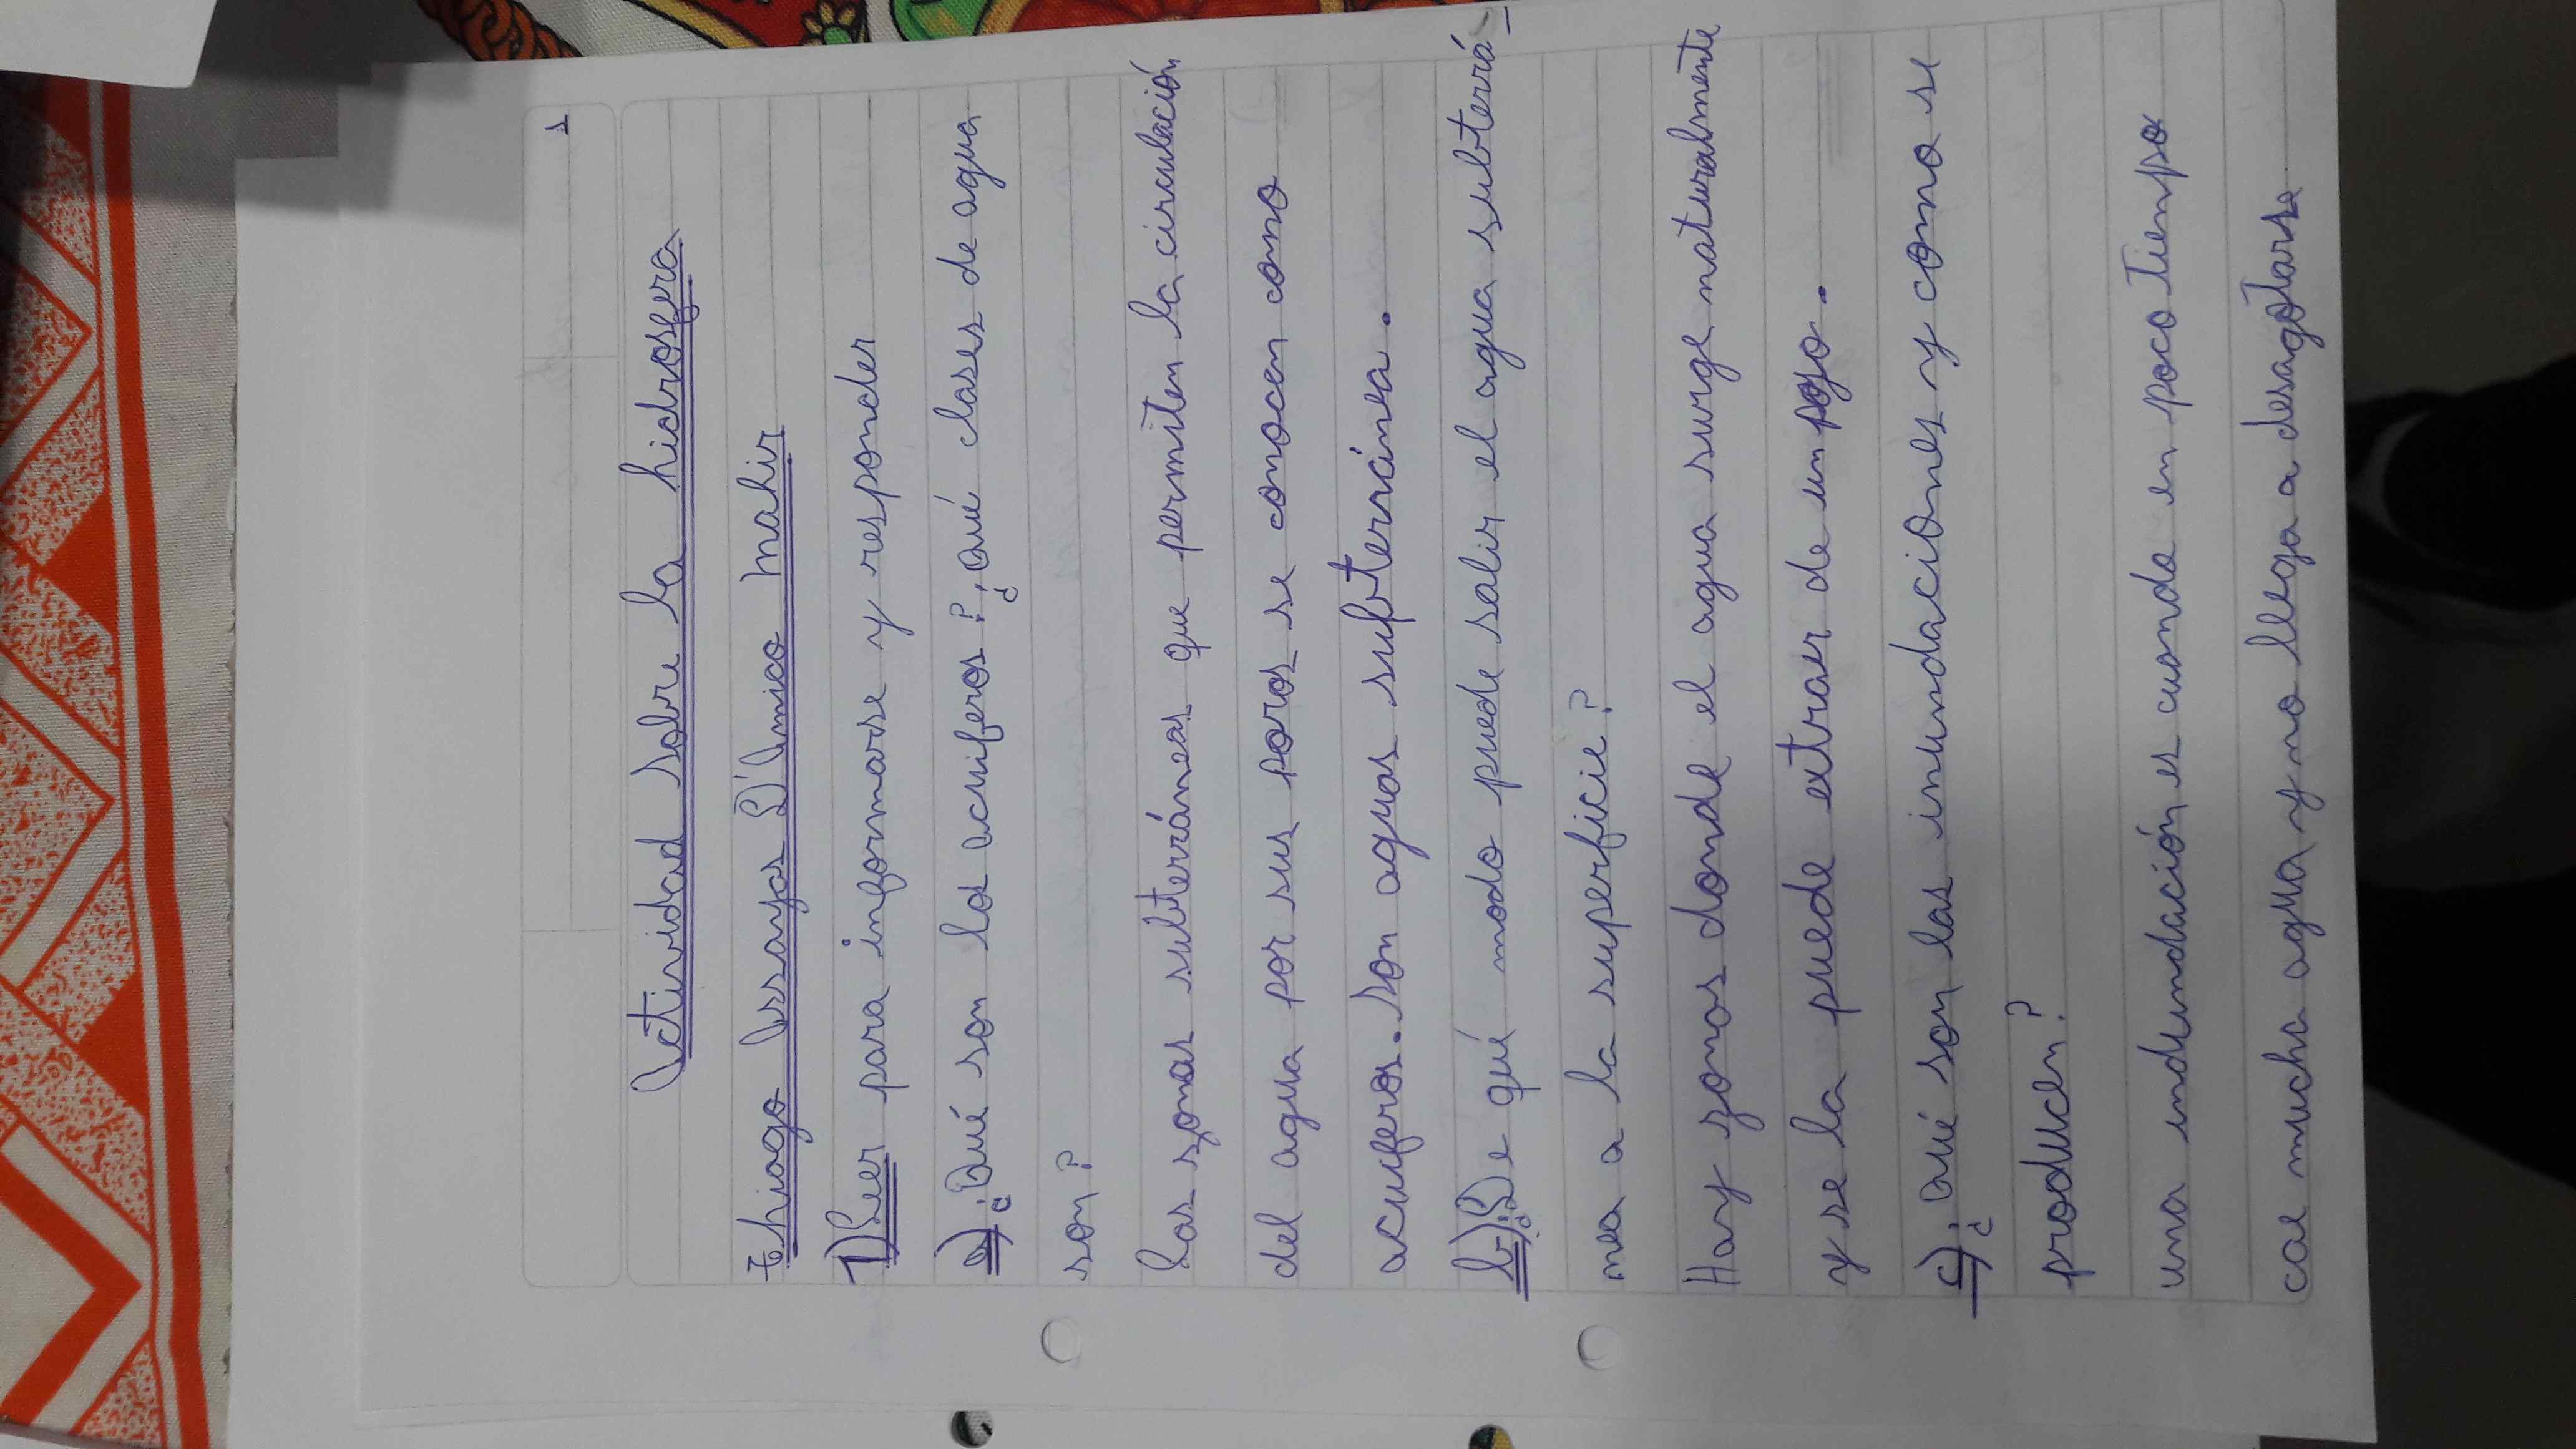 Actividad sobre la hidrosfera
thiago D'Amico mahir
1) Leer para informarse y responder
a) ¿Qué son los acuiferos?, ¿qué clases de agua
son?
Las zonas subterráneas que permiten la circulación
del agua por sus poros se conocen como
acuiferos. Son aguas subterránea.
b) ¿De qué modo puede salir el agua subterrá-
nea a la superficie?
Hay zonas donde el agua surge naturalmente
y se la puede extraer de un pozo.
c) ¿qué son las inundaciones y como se
producen?
una indundación es cuando en poco tienpo
cae mucha agua y no llega a desagotarse